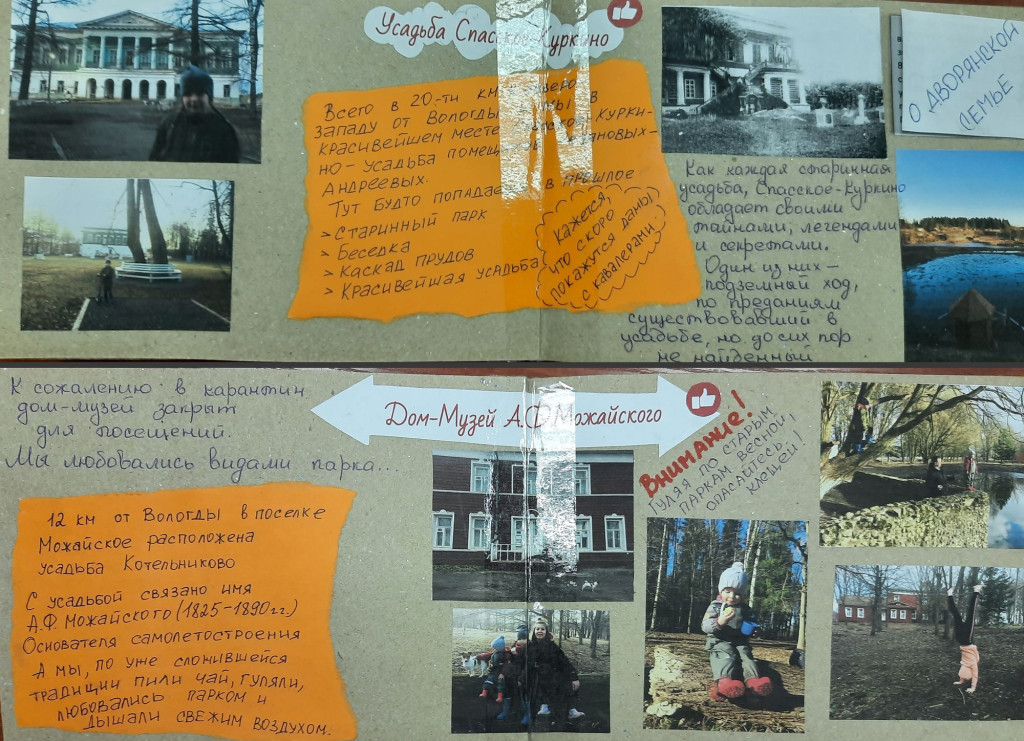 Усадьба Спасское-Куркино
Всего в 20-ти км
западу от Вологды в
красивейшем месте Курки-
но - усадьба помещ ановых-
Андреевых.
Тут будто попадае в прошлое
> Старинный парк
> Беседка
> Каскад прудов
> Красивейшая усадьба
Кажется,
что скоро
покажутся дамы
с кавалерами.
О ДВОРЯНСКОЙ
СЕМЬЕ
Как каждая старинная
усадьба, Спасское-Куркино
обладает своими
тайнами, легендами
и секретами.
Один из них -
подземный ход,
по преданиям
существовавший в
усадьбе, но до сих пор
не найденный
К сожалению в карантин
дом-музей закрыт
для посещений.
Мы любовались видами парка...
Дом-Музей А.Ф.Можайского
Внимание!
Гуляя по старым
паркам весной,
опасайтесь
клещей!
12 км от Вологды в поселке
Можайское расположена
усадьба Котельниково
С усадьбой связано имя
А.Ф. Можайского (1825-1890 гг.)
Основателя самолетостроения
А мы, по уже сложившейся
традиции пили чай, гуляли,
любовались парком и
дышали свежим воздухом.